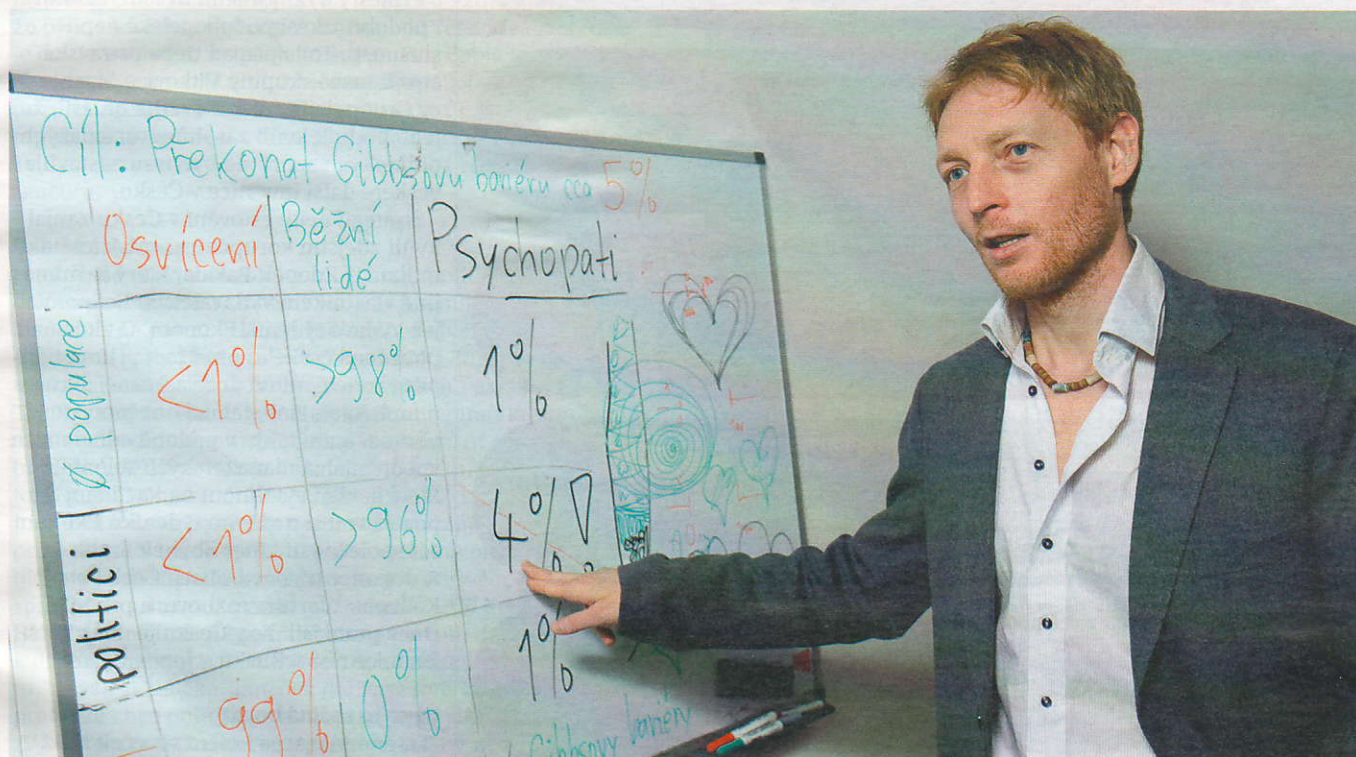 Cíl: Překonat Gibbsovu bariéru cca 5%
Osvícení
Běžní lidé
Psychopati
ø populace
<1% >98% 1%
politici
<1% >96% 4%
1%
99% 0%
Gibbsovy bariéry